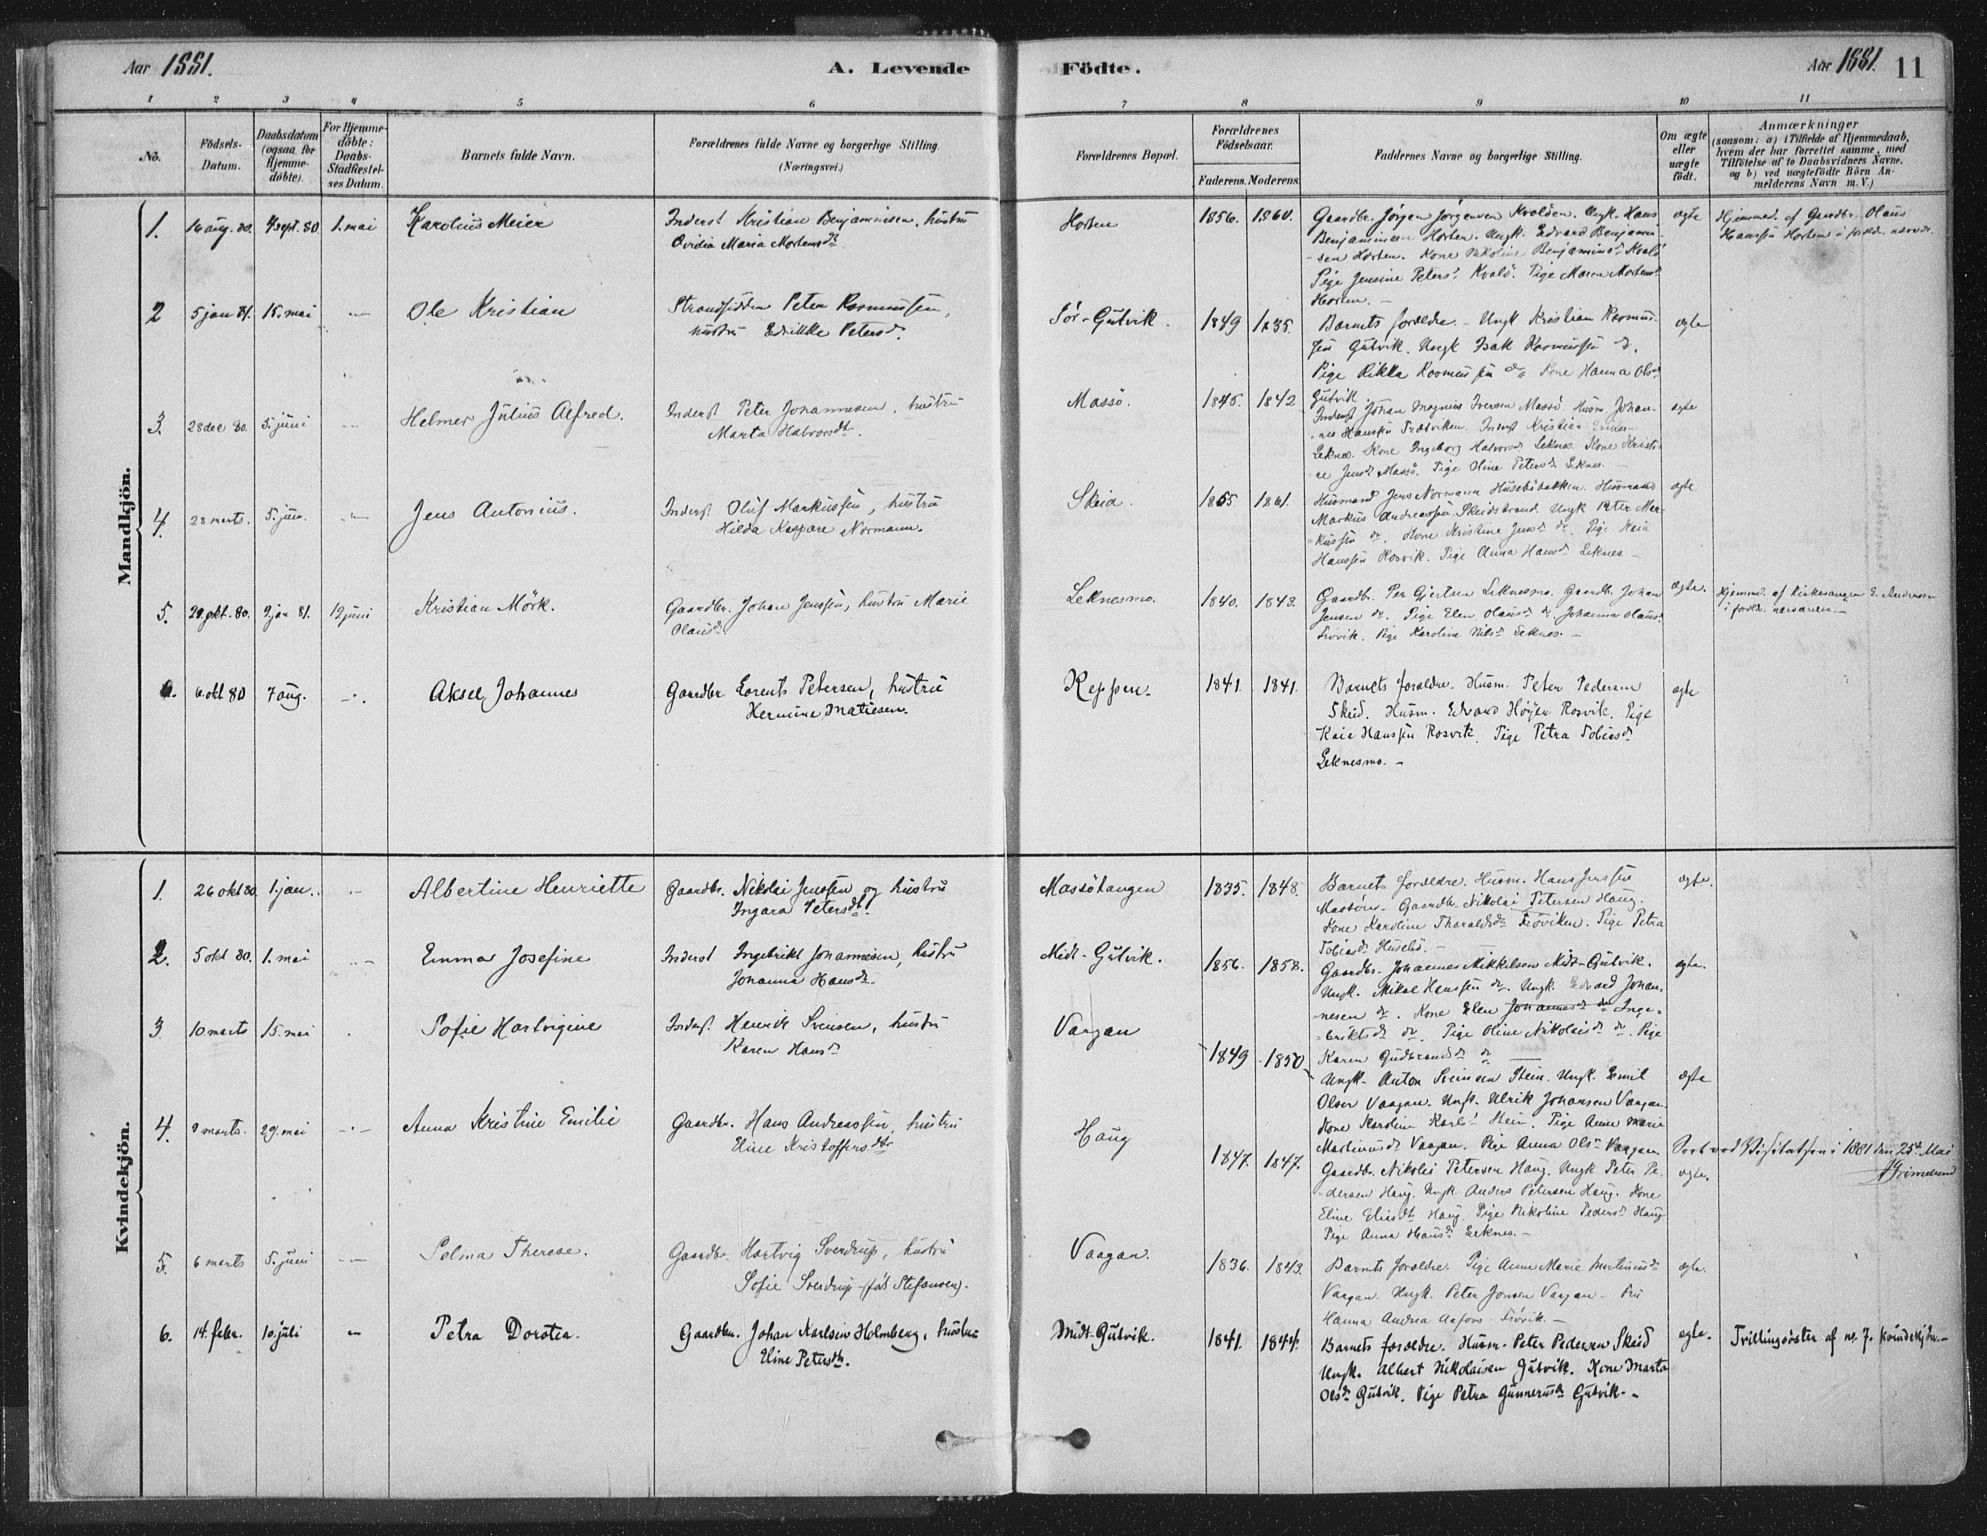 Aar 1881. A. Levende
Födte. Aar 1881. 11
1 2 3 4 5 6
7 8 9 10 11
No. Födsels-Datum. Daabsdatum (ogsaa for Hjemme-döbte). For Hjemme-döbte: Daabs-Stadfestel-ses Datum. Barnets fulde Navn. Forældrenes fulde Navne og borgerlige Stilling. (Næringsvei.)
Forældrenes Bopæl. Forældrenes Födselsaar. Faderens. Moderens. Faddernes Navne og borgerlige Stilling. Om ægte eller uægte födt. Anmærkninger (saasom: a) i Tilfælde af Hjemmedaab, hvem der har forrettet samme, med Tilföielse af to Daabsvidners Navne, og b) ved uægtefödte Börn Anmelderens Navn m. V.)
Mandkjön.
1. 16 aug. 80. 4 sept. 80 1. mai Karolius Meier Inderst Kristian Benjaminsen, hustru
Ovidia Maria Mortensdtr.
Horten 1856. 1860. Gaardbr. Jörgen Jörgensen Kvalöen. Ungk. Hans ægte Hjemmed. af Gaardbr. Olaus
Benjaminsen Horten. Ungk. Edvard Benjamin- Hanssen Horten i foreld. nærvær.
-sen Horten. Kone Nikoline Benjaminsd. Kvalö
Pige Jensine Petersd. Kvalö. Pige Maren Mortensd.
Horten. -
2 5 jan 81. 15. mai Ole Kristian Strandsidder Peter Rasmussen,
hustru Edrikke Petersd.
Sör-Gutvik. 1849 1835. Barnets forældre. - Ungk Kristian Rasmus- ægte
sen Gutvik. Ungk Isak Rasmussen do.
Pige Rikka Rasmussen do. Kone Hanna Olsd.
Gutvik.
3. 28 dec 80. 5. juni Helmer Julius Alfred. Inderst Peter Johannesen, hustru
Marta Halvorsdtr.
Massö. 1845. 1842. Inderst Johan Magnus Iversen Massö. Husm. Johan- ægte
-nes Hanssen Trætviken. Inderst Kristian
Leknes. Kone Ingeborg Halvorsd. Leknes. Kone Kristi-
ne Jensd. Massö. Pige Oline Petersd. Leknes. -
4. 28 marts. 5. juni. Jens Antonius. Inderst Oluf Markussen, hustru
Hilda Kaspara Normann.
Skeid. 1855 1861. Husmand Jens Normann Huseböbakken. Husmand ægte
Markus Andreassen Skeidstrand. Ungk Peter Mar-
kussen do. Kone Kristine Jensd. do. Pige Kaia
Hanssen Rosvik. Pige Anna Hansd. Leknes -
5. 29 okt. 80. 9 jan 81. 12 juni Kristian Mörk. Gaardbr. Johan Jenssen, hustru Marie
Olausd.
Leknesmo. 1840. 1843. Gaardbr. Per Gjertsen Leknesmo. Gaardbr. Johan ægte. Hjemmed. af Kirkesanger E. Andersen
Jensen do. Pige Elen Olausd. do. Johanna Olausd. i foreld. nærværen -
Frövik. Pige Karolina Nilsd. Leknes. -
6. 6. okt 80 7 aug. Aksel Johannes Gaardbr Lorents Petersen, hustru
Hermine Matiesen.
Reppen. 1841. 1841. Barnets forældre. Husm. Peter Pedersen ægte
Skeid. Husm. Edvard Höyer Rosvik. Pige
Kaia Hanssen Rosvik. Pige Petra Tobiasd.
Leknesmo. -
Kvindekjön.
1. 26 okt 80 1. jan. Albertine Henriette Gaardbr. Nikolai Jenssen og hustru
Ingara Petersdt.
Massöhaugen 1835. 1848. Barnets forældre. Husm. Hans Jenssen ægte.
Massöen. Gaardbr. Nikolai Petersen Haug.
Kone Karoline Tharaldsd. Fröviken. Pige Petra
Tobiasd. Husebö. -
2. 5 okt 80. 1. mai Emma Josefine Inderst Ingebrikt Johannesen, hustru
Johanna Hansd.
Midt-Gutvik. 1856. 1858. Gaardbr. Johannes Mikkelsen Midt-Gutvik. ægte.
Ungk. Mikal Hanssen do. Ungk. Edvard Johan-
nesen do. Kone Elen Johannesd. do Inge-
briktsd. do. Pige Oline Nikolaisd. do. Pige
Karen Gudbrandsd. do
3 10 marts 15. mai Sofie Hartvigine Inderst. Henrik Svensen, hustru
Karen Hansd.
Vaagan 1849 1850 Ungk. Anton Svensen Stein. Ungk. Emil ægte
Olsen Vaagan. Ungk. Ulrik Johansen Vaagan.
Kone Karoline Karlsd. Stein. Pige Anne Marie
Martinusd. Vaagan. Pige Anna Olsd. Vaagan
4. 9 marts. 29. mai Anna Kristine Emilie Gaardbr. Hans Andreassen, hustru
Eline Kristoffersdtr.
Haug 1847. 1847. Gaardbr. Nikolai Petersen Haug. Ungk Peter Pe- ægte.
-dersen Haug. Ungk. Anders Petersen Haug. Kone
Eline Eliesdt. Haug. Pige Nikoline Pedersd. Haug
Pige Anna Hansd. Leknes. -
Seet ved Visitatsen i 1881 den 25de Mai
Grimelund
5. 6 marts 5. juni Selma Therese. Gaardbr. Hartvig Sverdrup, hustru
Sofie Sverdrup (föd Stefansen).
Vaagan. 1836. 1843. Barnets forældre. Pige Anne Marie Martinusd. ægte.
Vaagan. Ungk. Peter Jonsen Vaagan. Fru
Hanna Andrea Aafors Frövik. -
6. 14. febr. 10. juli Petra Dorotea. Gaardbr. Johan Karlsen Holmberg, hustru
Eline Petersdtr.
Midt-Gutvik. 1841. 1844. Barnets forældre. Husm. Peter Pedersen Skeid ægte. Tvillingsöster af no. 7. kvindekjön. -
Ungk. Albert Nikolaisen Gutvik. Kone Marta
Olsd. Gutvik. Pige Petra Gunnerusd. Gutvik. -